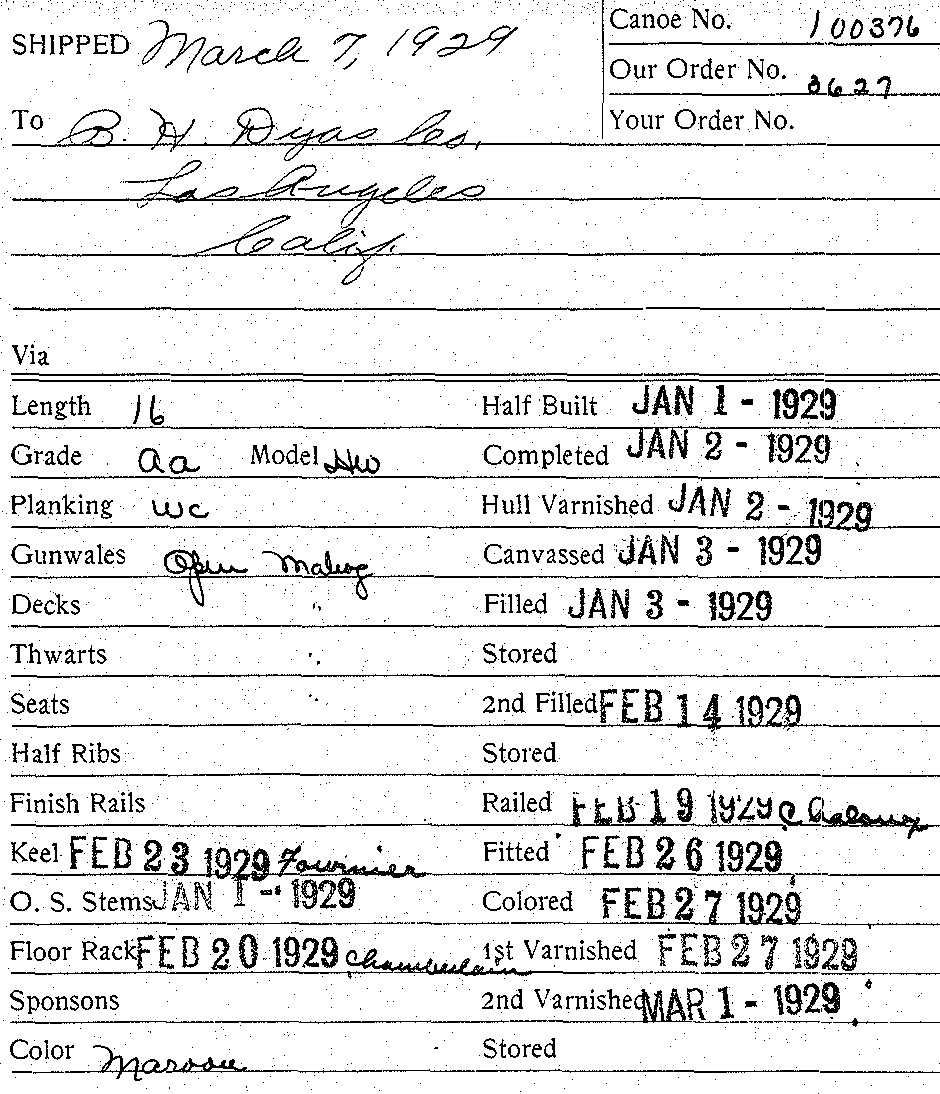 SHIPPED March 7, 1929
Canoe No. 100376
Our Order No. 3627
To B. H. Dyas Co,
Your Order No.
Los Angeles
Calif.
Via
Length 16 Half Built JAN 1 - 1929
Grade aa Model HW Completed JAN 2 - 1929
Planking wc Hull Varnished JAN 2 - 1929
Gunwales Open Mahog Canvassed JAN 3 - 1929
Decks " Filled JAN 3 - 1929
Thwarts " Stored
Seats " 2nd Filled FEB 14 1929
Half Ribs Stored
Finish Rails Railed FEB 19 1929 C
Keel FEB 23 1929 Fournier Fitted FEB 26 1929
O. S. Stems JAN 1 - 1929 Colored FEB 27 1929
Floor Rack FEB 20 1929 Chamberlain 1st Varnished FEB 27 1929
Sponsons 2nd Varnished MAR 1 - 1929
Color Maroon Stored